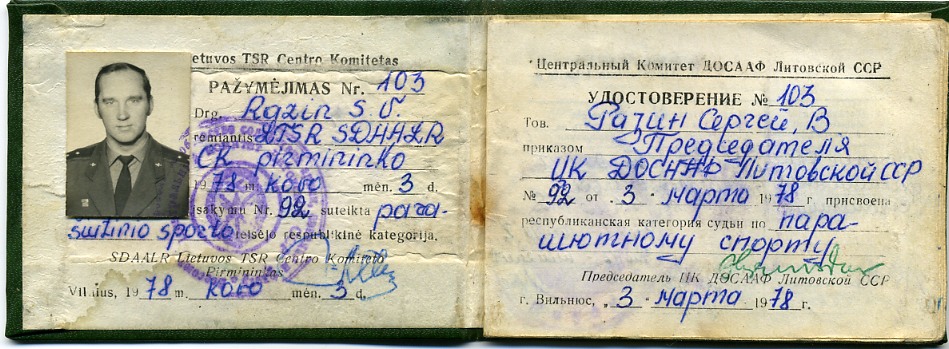 Lietuvos TSR Centro Komitetas
PAŽYMĖJIMAS Nr. 103
Drg. Razin S. V.
remiantis LTSR SDAALR
CK pirmininko
1978 m. kovo mėn. 3 d.
įsakymu Nr. 92 suteikta para-
šiutinio sporto teisėjo respublikinė kategorija.
SDAALR Lietuvos TSR Centro Komiteto
Pirmininkas
Vilnius, 1978 m. kovo mėn. 3 d.
Центральный Комитет ДОСААФ Литовской ССР
УДОСТОВЕРЕНИЕ № 103
Тов. Разин Сергей, В
приказом Председателя
ЦК ДОСААФ Литовской ССР
№ 92 от 3 марта 1978 г. присвоена
республиканская категория судьи по пара-
шютному спорту
Председатель ЦК ДОСААФ Литовской ССР
г. Вильнюс, 3 марта 1978 г.